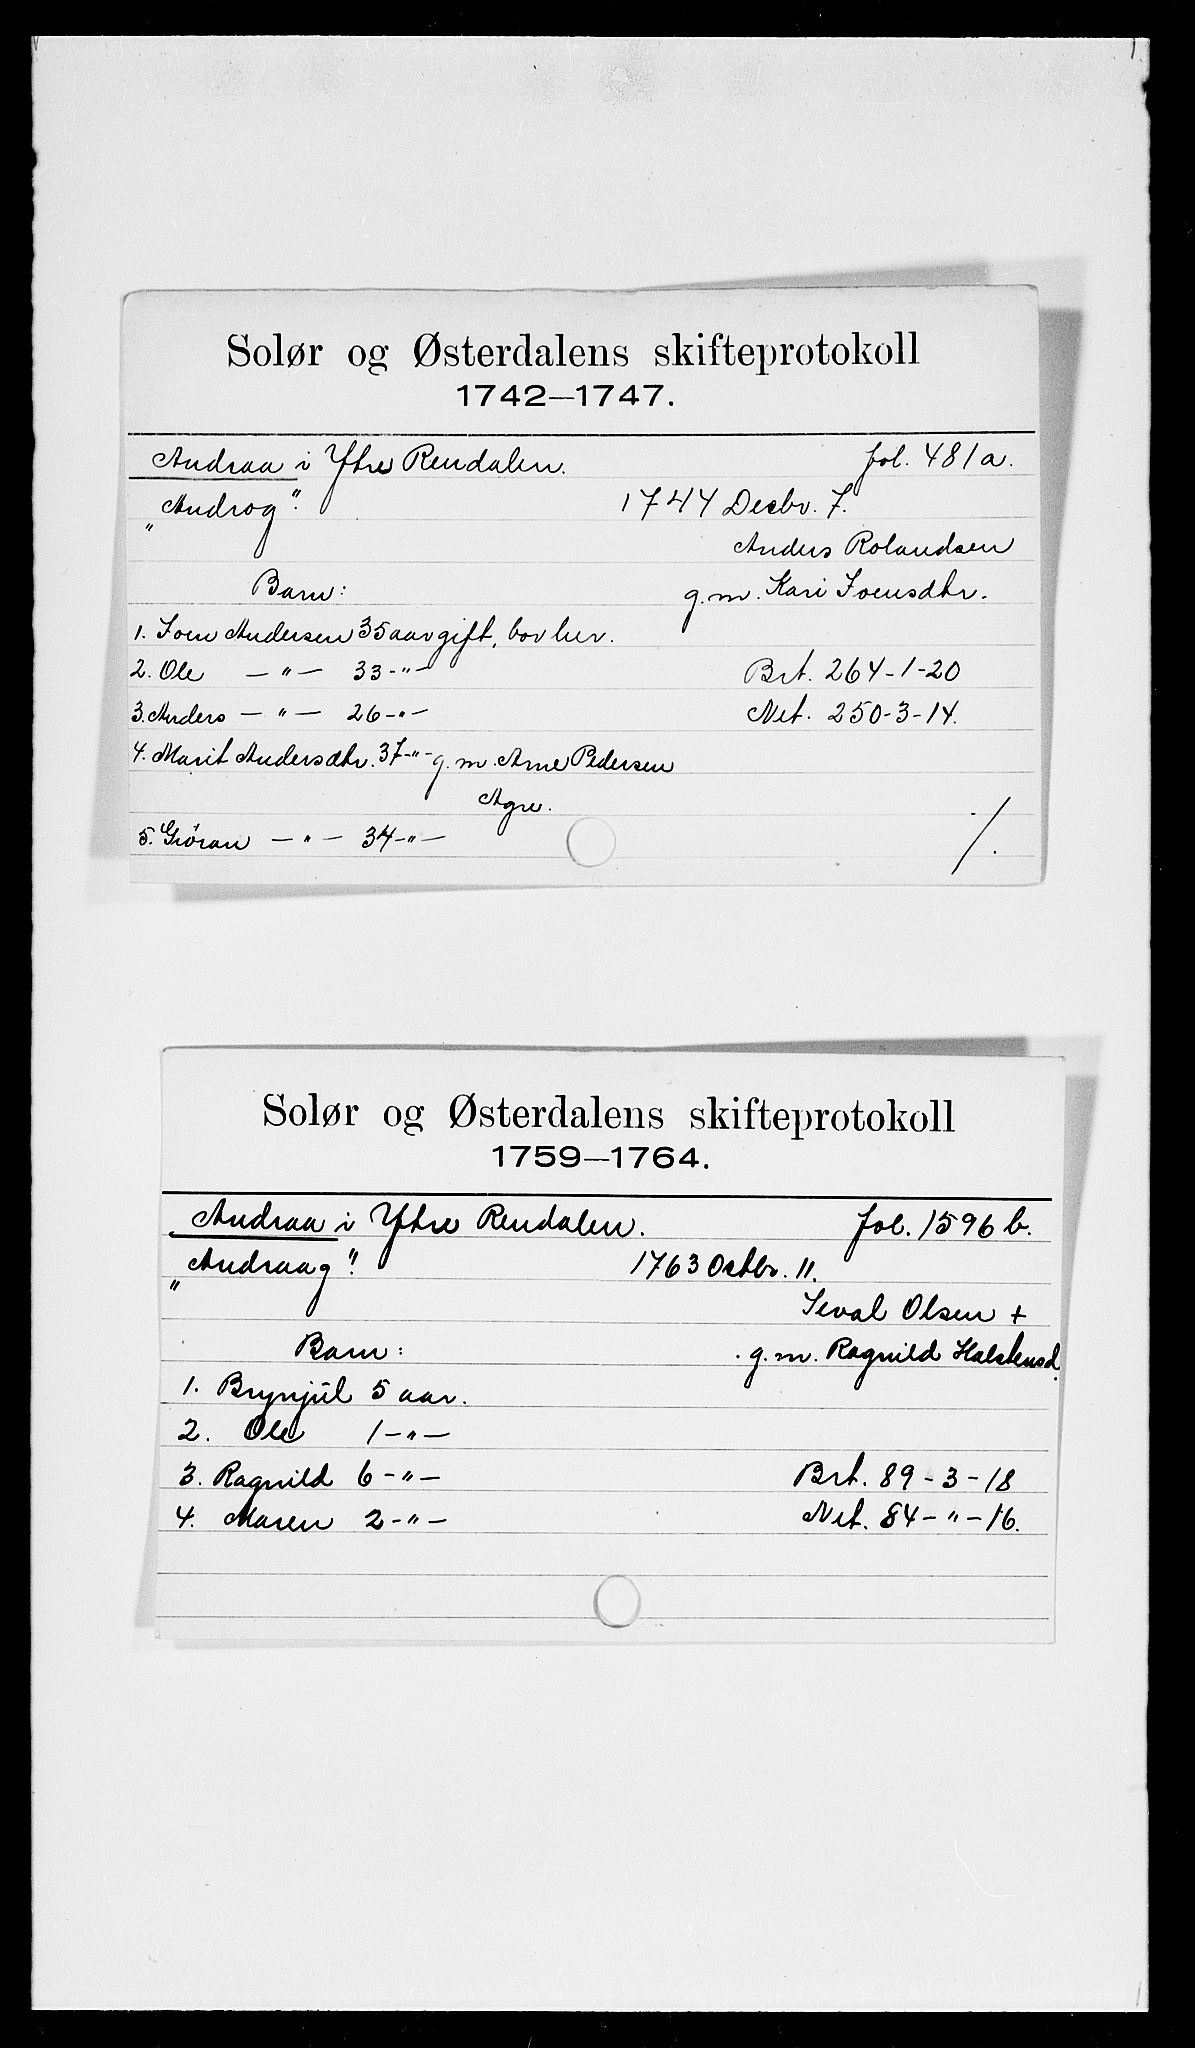 Solør og Østerdalens skifteprotokoll
1742—1747.
Andraa i Ytre Rendalen. fol. 481a.
„Androg“. 1744 Decbr. 7.
Anders Rolandsen
Barn: g.m. Kari Joensdtr.
1. Joen Andersen 35 aar gift, bor her.
2. Ole — " — 33 - " — Brt. 264-1-20
3. Anders — " — 26 - " — Net. 250-3-14.
4. Marit Andersdtr. 37 - " - g.m. Arne Pedersen
Agre.
5. Giöran — " — 34 - " — /.
Solør og Østerdalens skifteprotokoll
1759—1764.
Andraa i Ytre Rendalen. fol. 1596 b.
„Andraag“. 1763 Octbr. 11.
Seval Olsen +
Barn: g.m. Ragnild Halstensd.
1. Brynjül 5 aar.
2. Ole 1 - " —
3. Ragnild 6 - " — Brt. 89 - 3 - 18
4. Maren 2 - " — Net. 84 - " - 16.